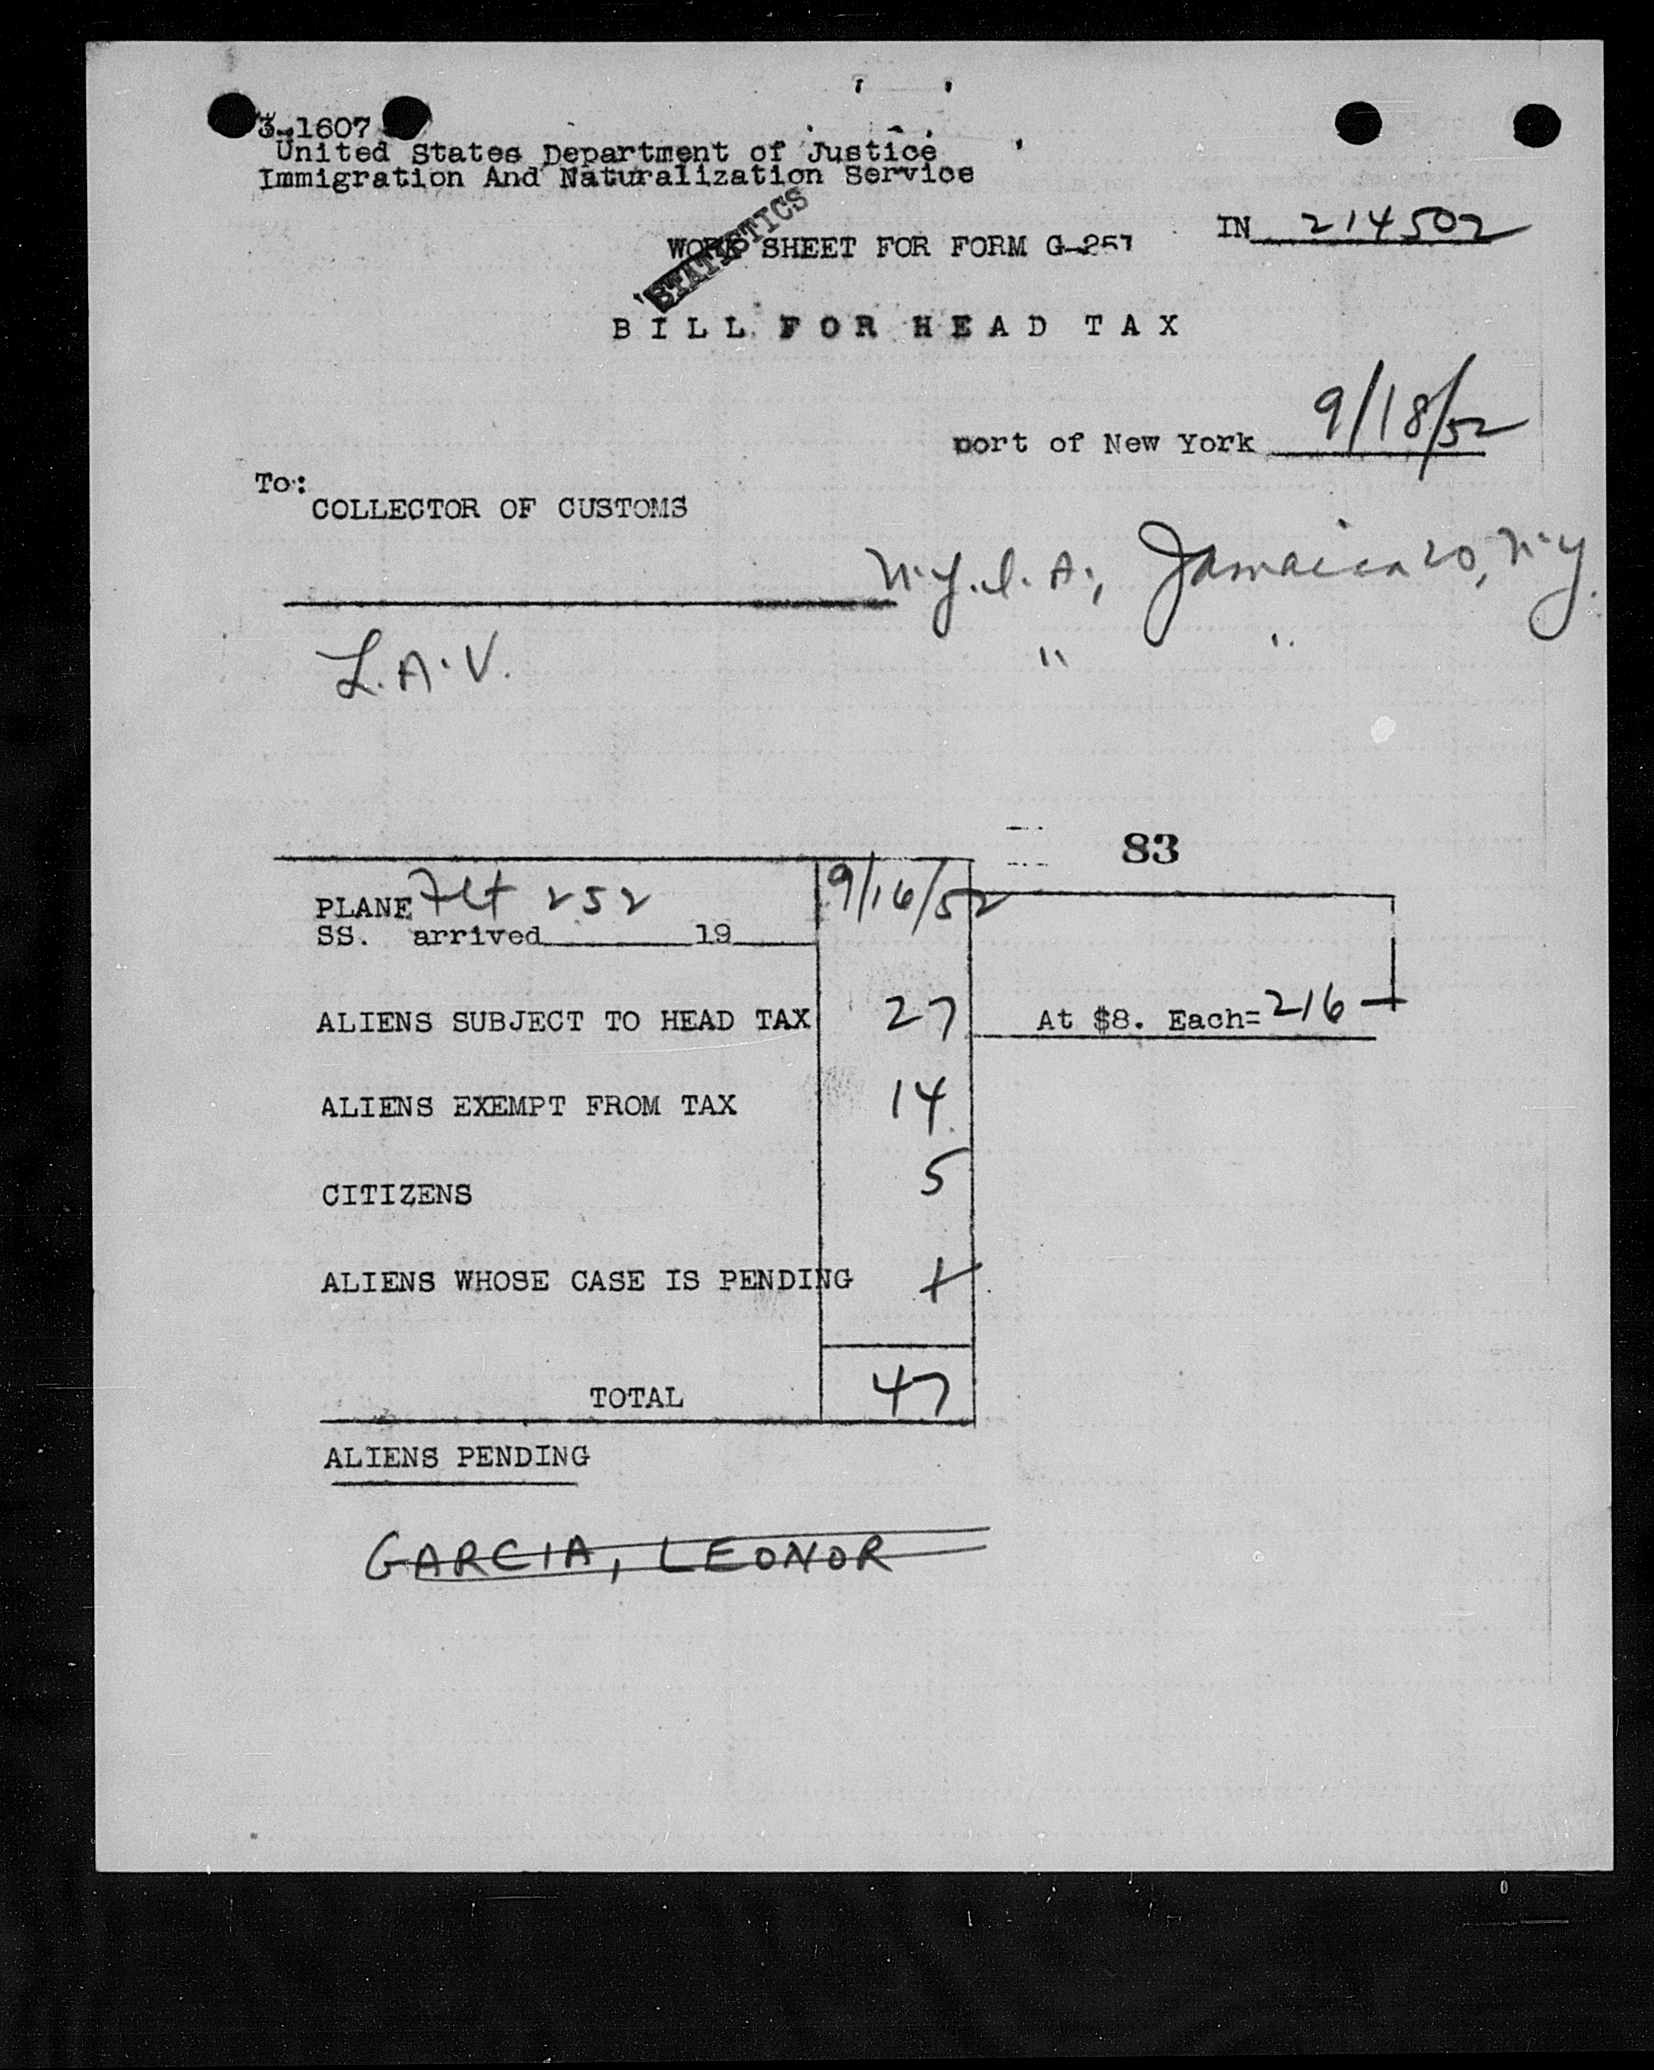 3-1607
United States Department of Justice
Immigration And Naturalization Service
STATISTICS
WORK SHEET FOR FORM G-257
IN 214502
BILL FOR HEAD TAX
port of New York 9/18/52
To:
COLLECTOR OF CUSTOMS
N.Y.I.A., Jamaica 20, N.Y.
L.A.V. " "
83
PLANE Flt 252 9/16/52
SS. arrived 19
ALIENS SUBJECT TO HEAD TAX 27 At $8. Each= 216
ALIENS EXEMPT FROM TAX 14
CITIZENS 5
ALIENS WHOSE CASE IS PENDING 1
TOTAL 47
ALIENS PENDING
GARCIA, LEONOR